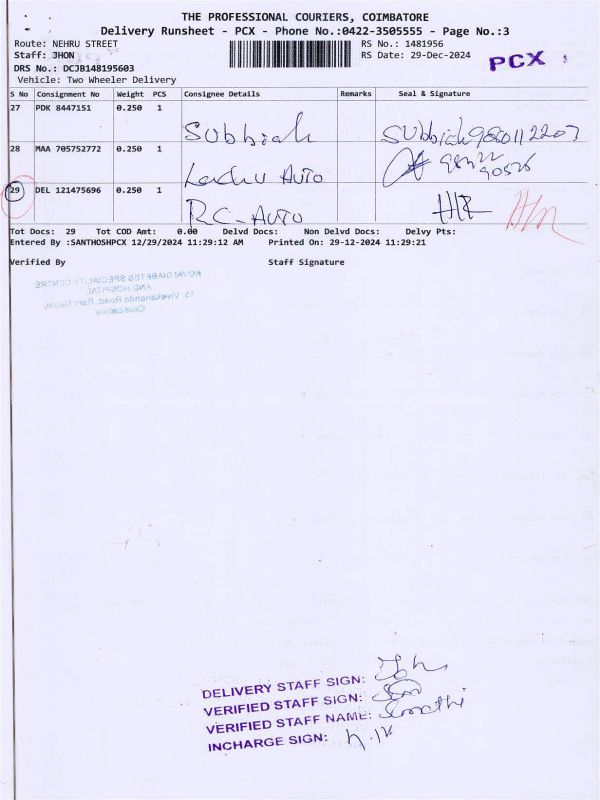 THE PROFESSIONAL COURIERS, COIMBATORE
Delivery Runsheet - PCX - Phone No.:0422-3505555 - Page No.:3
Route: NEHRU STREET RS No.: 1481956
Staff: JHON RS Date: 29-Dec-2024
PCX
DRS No.: DCJB148195603
Vehicle: Two Wheeler Delivery
S No Consignment No Weight PCS Consignee Details Remarks Seal & Signature
27 PDK 8447151 0.250 1
Subbiah Subbiah
28 MAA 705752772 0.250 1
Lachu Auto 98422
90526
29 DEL 121475696 0.250 1
RC-AUTO
Tot Docs: 29 Tot COD Amt: 0.00 Delvd Docs: Non Delvd Docs: Delvy Pts:
Entered By :SANTHOSHPCX 12/29/2024 11:29:12 AM Printed On: 29-12-2024 11:29:21
Verified By Staff Signature
KOVAI DIABETES SPECIALITY CENTRE
AND HOSPITAL
15 Vivekananda Road, Ram Nagar,
Coimbatore
DELIVERY STAFF SIGN:
VERIFIED STAFF SIGN:
VERIFIED STAFF NAME: Sumathi
INCHARGE SIGN: